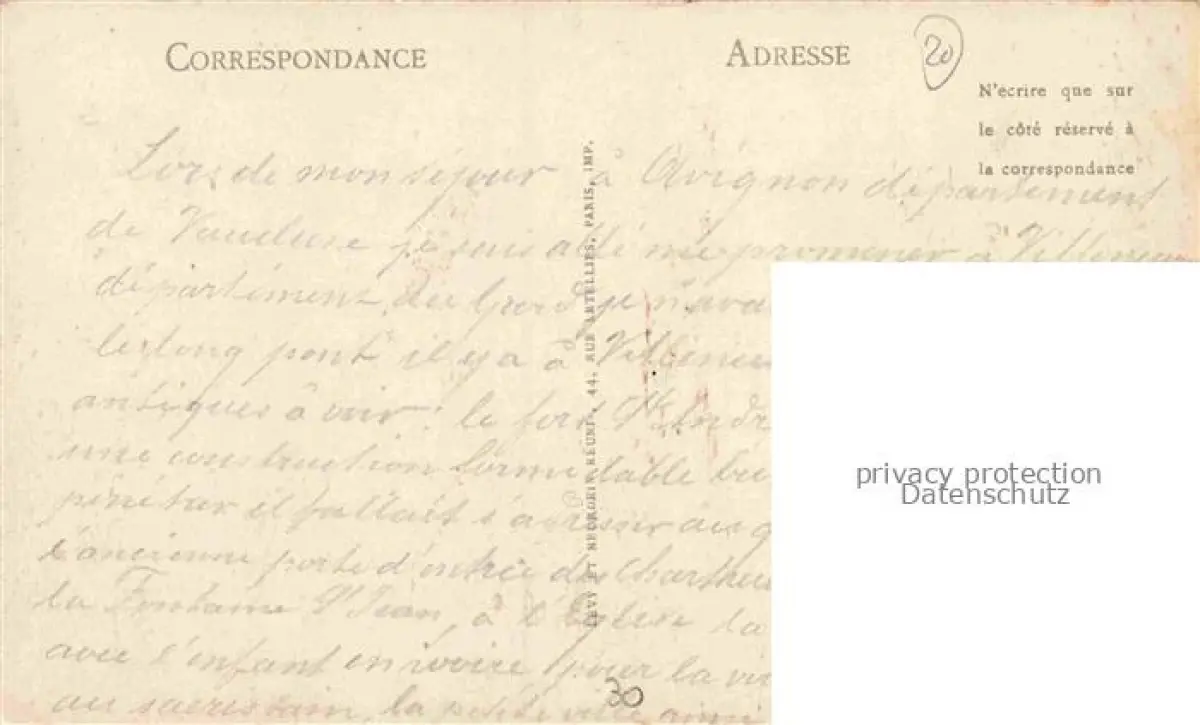 CORRESPONDANCE
ADRESSE
20
N'écrire que sur
le côté réservé à
la correspondance
Lors de mon séjour à Avignon département
de Vaucluse je suis allé me promener à
département du Gard je n'avai
le long pont il y a à
antiques à voir : le fort St Andr
une construction formidable
pénétrer il fallait s'adresser au
l'ancienne porte d'entrée de Chartreu
la Fontaine St Jean, à l'Eglise la
avec l'enfant en ivoire pour la
au sacristain, la petite ville ainsi
LEVY ET NEURDEIN RÉUNIS, 44, RUE LETELLIER, PARIS, IMP.
30
privacy protection
Datenschutz